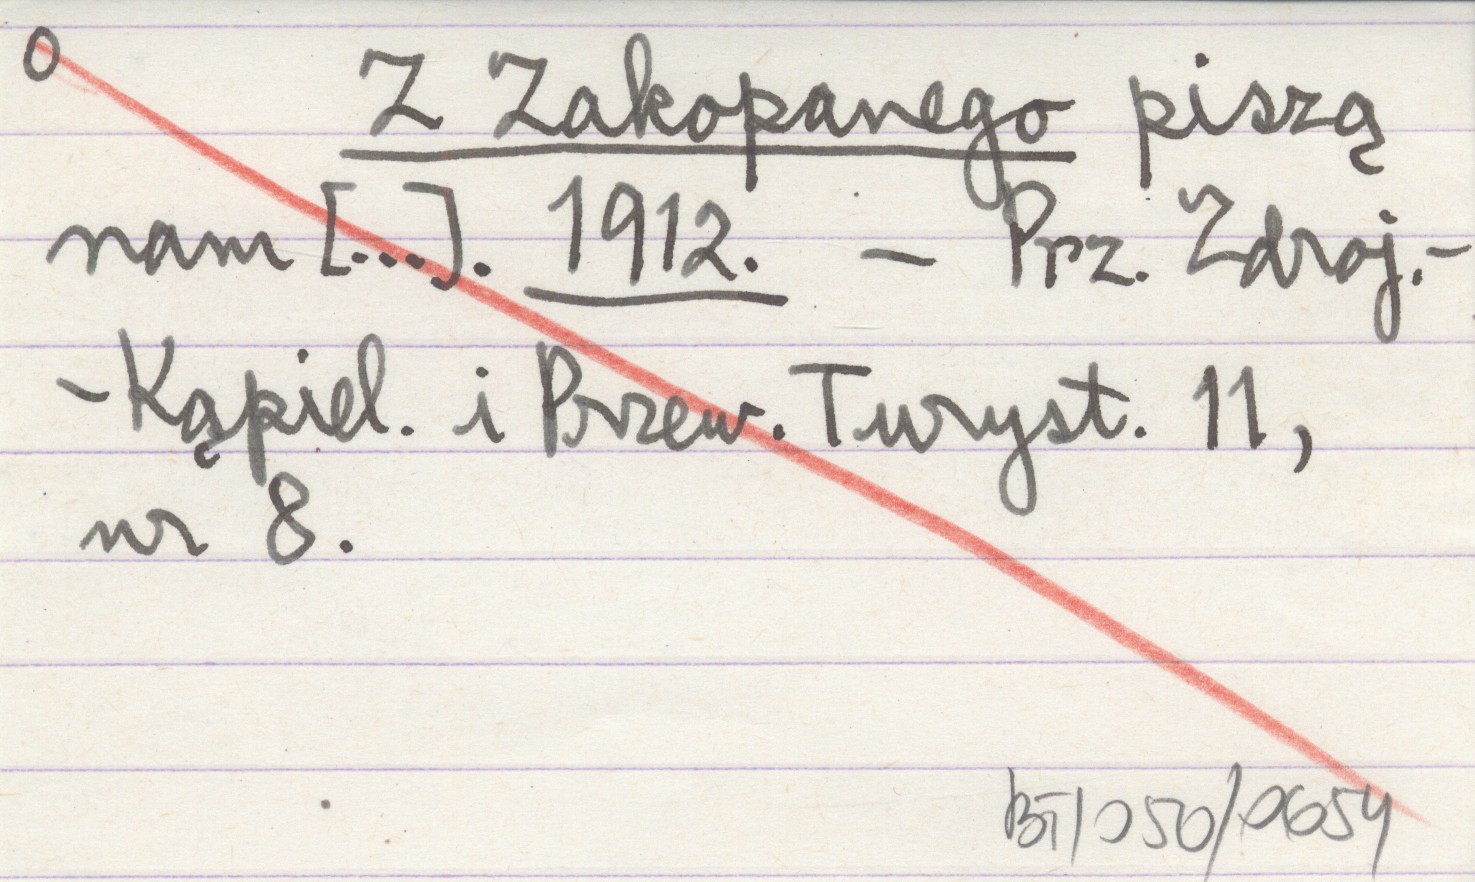 O
Z Zakopanego piszą
nam [...]. 1912. – Prz. Zdroj.-
-Kąpiel. i Przew. Turyst. 11,
nr 8.
BT/050/0654